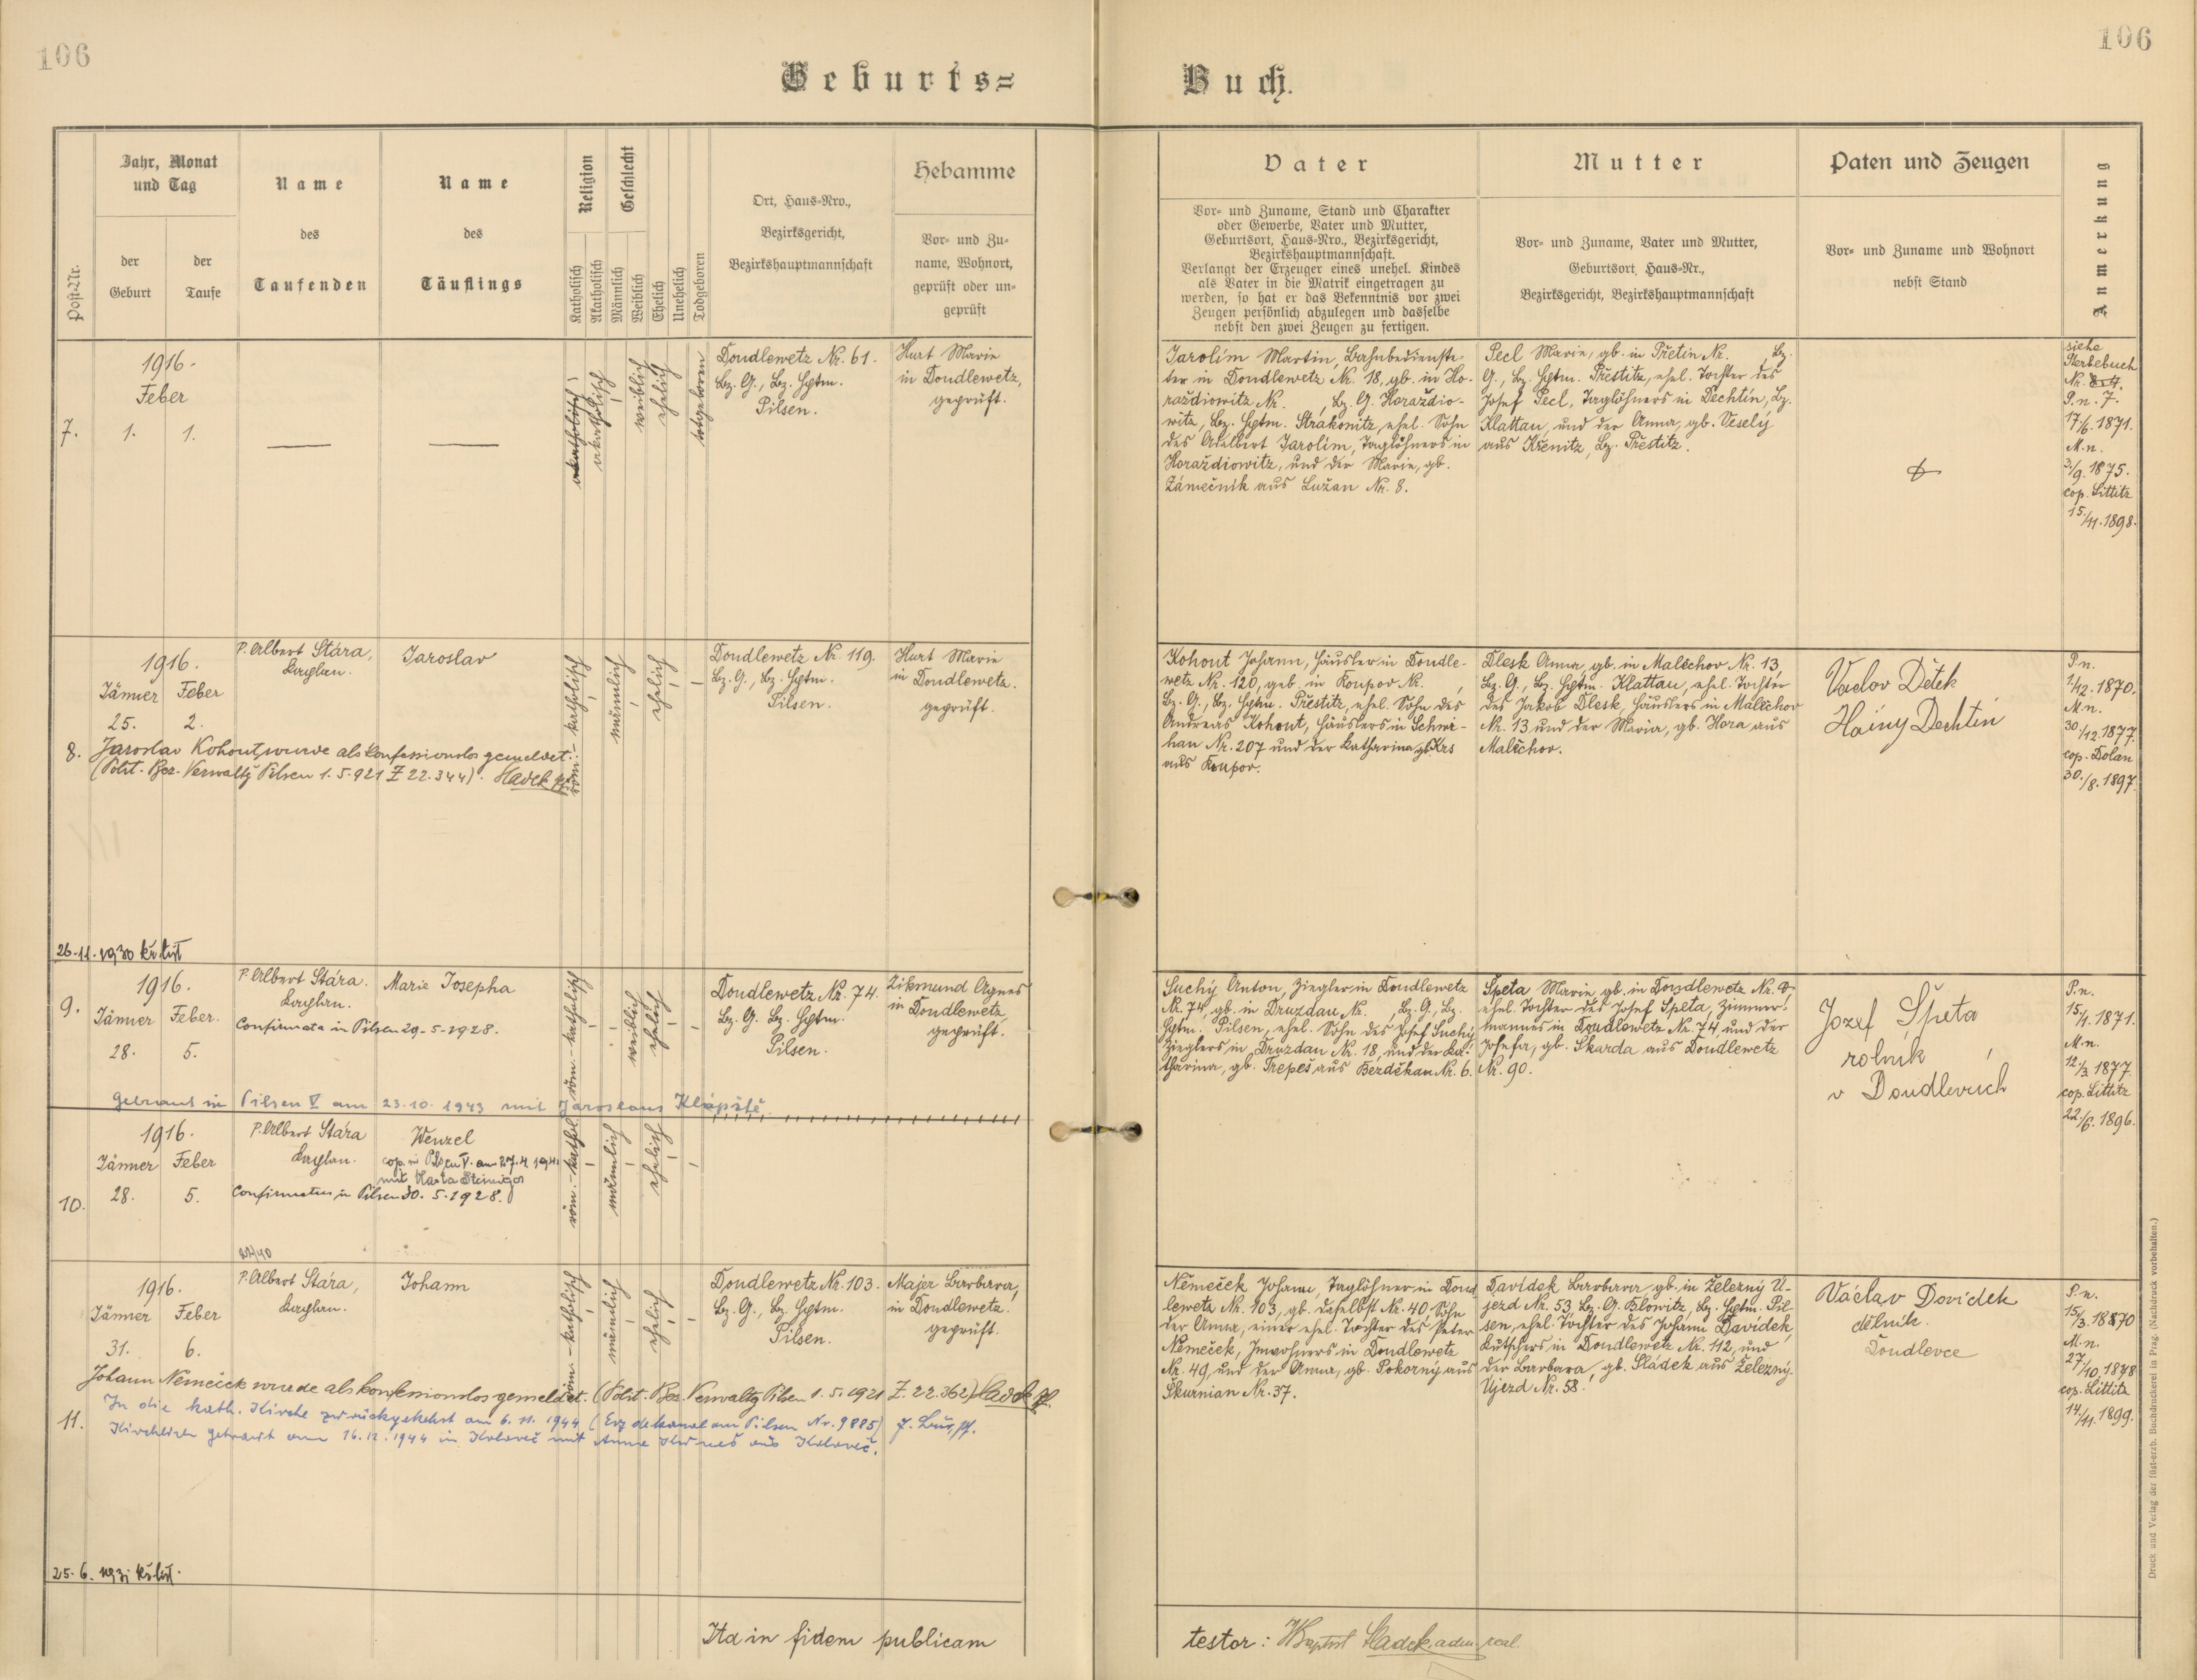 106
106
Geburts=
Buch.
Post-Nr.
Jahr, Monat
und Tag
der
Geburt
der
Taufe
Name
des
Taufenden
Name
des
Täuflings
Religion
Katholisch
Akatholisch
Geschlecht
Männlich
Weiblich
Ehelich
Unehelich
Todgeboren
Ort, Haus=Nro.,
Bezirksgericht,
Bezirkshauptmannschaft
Hebamme
Vor= und Zu=
name, Wohnort,
geprüft oder un=
geprüft
Vater
Vor= und Zuname, Stand und Charakter
oder Gewerbe, Vater und Mutter,
Geburtsort, Haus=Nro., Bezirksgericht,
Bezirkshauptmannschaft.
Verlangt der Erzeuger eines unehel. Kindes
als Vater in die Matrik eingetragen zu
werden, so hat er das Bekenntnis vor zwei
Zeugen persönlich abzulegen und dasselbe
nebst den zwei Zeugen zu fertigen.
Mutter
Vor= und Zuname, Vater und Mutter,
Geburtsort, Haus=Nr.,
Bezirksgericht, Bezirkshauptmannschaft
Paten und Zeugen
Vor= und Zuname und Wohnort
nebst Stand
Anmerkung
7.
1916.
Feber
1. 1.
akatholisch
weiblich
ehelich
totgeboren
Doudlewetz Nr. 61.
Bz. G., Bz. Hptm.
Pilsen.
Hurt Marie
in Doudlewetz,
geprüft.
Jarolím Martin, Bahnbedienste-
ter in Doudlewetz Nr. 18, gb. in Ho-
raždiowitz Nr. , Bz. G. Horaždio-
witz, Bz. Hptm. Strakonitz, ehel. Sohn
des Adalbert Jarolím, Taglöhners in
Horaždiowitz, und der Marie, gb.
Zámečník aus Lužan Nr. 8.
Pecl Marie, gb. in Přetin Nr. , Bz.
G., Bz. Hptm. Přestitz, ehel. Tochter des
Josef Pecl, Taglöhners in Dechtín, Bz.
Klattau, und der Anna, gb. Veselý
aus Křenitz, Bz. Přestitz.
siehe
Sterbebuch
P. n. 7.
17/6. 1871.
M. n.
2/9. 1875.
cop. Littitz
15./11. 1898.
8.
1916.
Jänner Feber
25. 2.
P. Albert Stára,
Kaplan.
Jaroslav
röm.-katholisch
männlich
ehelich
Doudlewetz Nr. 119.
Bz. G., Bz. Hptm.
Pilsen.
Hurt Marie
in Doudlewetz.
geprüft.
Jaroslav Kohout wurde als konfessionslos gemeldet.
(Polit. Bez. Verwaltg Pilsen 1. 5. 921 Z 22.344). Sladek
26. 11. 1930 kř. list
Kohout Johann, Häusler in Doudle-
wetz Nr. 120, geb. in Koupov Nr. ,
Bz. G., Bz. Hptm. Přestitz, ehel. Sohn des
Andreas Kohout, Häuslers in Schwi-
hau Nr. 207 und der Katharina gb. Krs
aus Koupov.
Dlesk Anna, gb. in Malěchov Nr. 13,
Bz. G., Bz. Hptm. Klattau, ehel. Tochter
des Jakob Dlesk, Häuslers in Malěchov
Nr. 13 und der Maria, gb. Hora aus
Malěchov.
Vaclav Dětek
Dechtin
P. n.
1/12. 1870.
M. n.
30./12. 1877.
cop. Dolan
30./8. 1897.
9.
1916.
Jänner Feber.
28. 5.
P. Albert Stára.
Kaplan.
Marie Josepha
Confirmata in Pilsen 29. 5. 1928.
röm.-katholisch
weiblich
ehelich
Doudlewetz Nr. 74.
Bz. G. Bz. Hptm.
Pilsen.
Zikmund Agnes
in Doudlewetz,
geprüft.
Getraut in Pilsen V am 23. 10. 1943 mit Jaroslaus Klápště.
Suchý Anton, Ziegler in Doudlewetz
Nr. 74, gb. in Druzdau Nr. , Bz. G., Bz.
Hptm. Pilsen, ehel. Sohn des Josef Suchý
Zieglers in Druzdau Nr. 18, und der Ka-
tharina, gb. Trepeš aus Bezděkau Nr. 6.
Speta Marie gb. in Doudlewetz Nr. 8
ehel. Tochter des Josef Speta, Zimmer-
mannes in Doudlewetz Nr. 74, und der
Josefa, gb. Skarda aus Doudlewetz
Nr. 90.
Jozef Špeta
rolnik
v Doudlevcich
P. n.
15./1. 1871.
M. n.
12./3. 1877.
cop. Littitz
22./6. 1896.
10.
1916.
Jänner Feber
28. 5.
P. Albert Stára
Kaplan.
Wenzel
cop. in Pilsen V. am 27. 4. 194
mit
Confirmatus in Pilsen 30. 5. 1928.
röm.-kathol.
männlich
ehelich
11.
1916.
Jänner Feber
31. 6.
P. Albert Stára,
Kaplan.
Johann
röm.-katholisch
männlich
ehelich
Doudlewetz Nr. 103.
Bz. G., Bz. Hptm.
Pilsen.
Majer Barbara,
in Doudlewetz.
geprüft.
Johann Němeček wurde als konfessionslos gemeldet. (Polit. Bez. Verwaltg Pilsen 1. 5. 1921 Z. 22.362) Sladek
In die kath. Kirche zurückgekehrt am 6. 11. 1944 (Erzdekanalamt Pilsen Nr. 9885)
Kirchlich getraut am 16. 12. 1944 in Koloweč mit Anna aus Koloweč.
25. 6. 1931 kř. list.
Němeček Johann, Taglöhner in Doud
lewetz Nr. 103, gb. daselbst Nr. 40, Sohn
der Anna, einer ehel. Tochter des Peter
Němeček, Inwohners in Doudlewetz
Nr. 49, und der Anna, gb. Pokorný aus
Škurnian Nr. 37.
Davídek Barbara, gb. in Železný U-
jezd Nr. 53, Bz. G. Blowitz, Bz. Hptm. Pil-
sen, ehel. Tochter des Johann Davídek,
Kutschers in Doudlewetz Nr. 112, und
der Barbara, gb. Sládek aus Železný-
Ujezd Nr. 58.
Václav Dovídek
dělník.
Doudlevce
P. n.
15./3. 1870
M. n.
27/10. 1878
cop. Littitz
14./11. 1899.
Ita in fidem publicam
testor: Sladek adm.
Druck und Verlag der fürst-erzb. Buchdruckerei in Prag. (Nachdruck vorbehalten.)